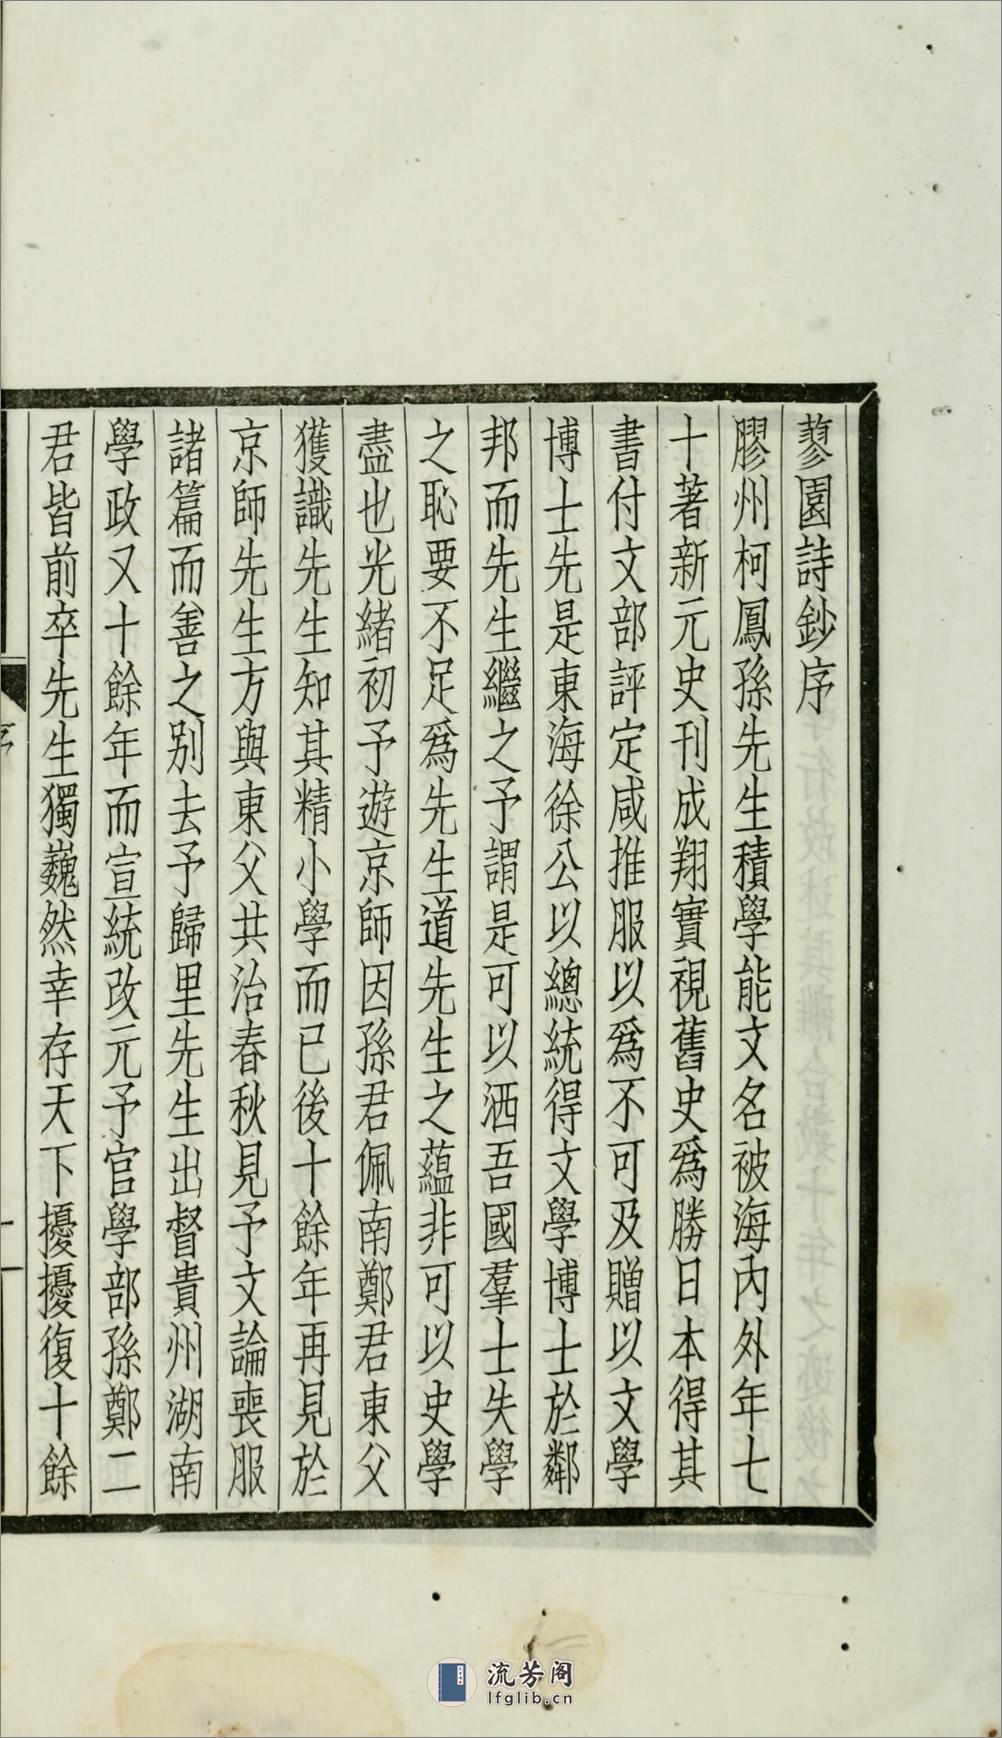 蓼園詩鈔序
膠州柯鳳孫先生積學能文名被海內外年七
十著新元史刊成翔實視舊史爲勝日本得其
書付文部評定咸推服以爲不可及贈以文學
博士先是東海徐公以總統得文學博士於鄰
邦而先生繼之予謂是可以洒吾國羣士失學
之恥要不足爲先生道先生之蘊非可以史學
盡也光緒初予遊京師因孫君佩南鄭君東父
獲識先生知其精小學而已後十餘年再見於
京師先生方與東父共治春秋見予文論喪服
諸篇而善之別去予歸里先生出督貴州湖南
學政又十餘年而宣統改元予官學部孫鄭二
君皆前卒先生獨巍然幸存天下擾擾復十餘
序
一
流芳阁
lfglib.cn